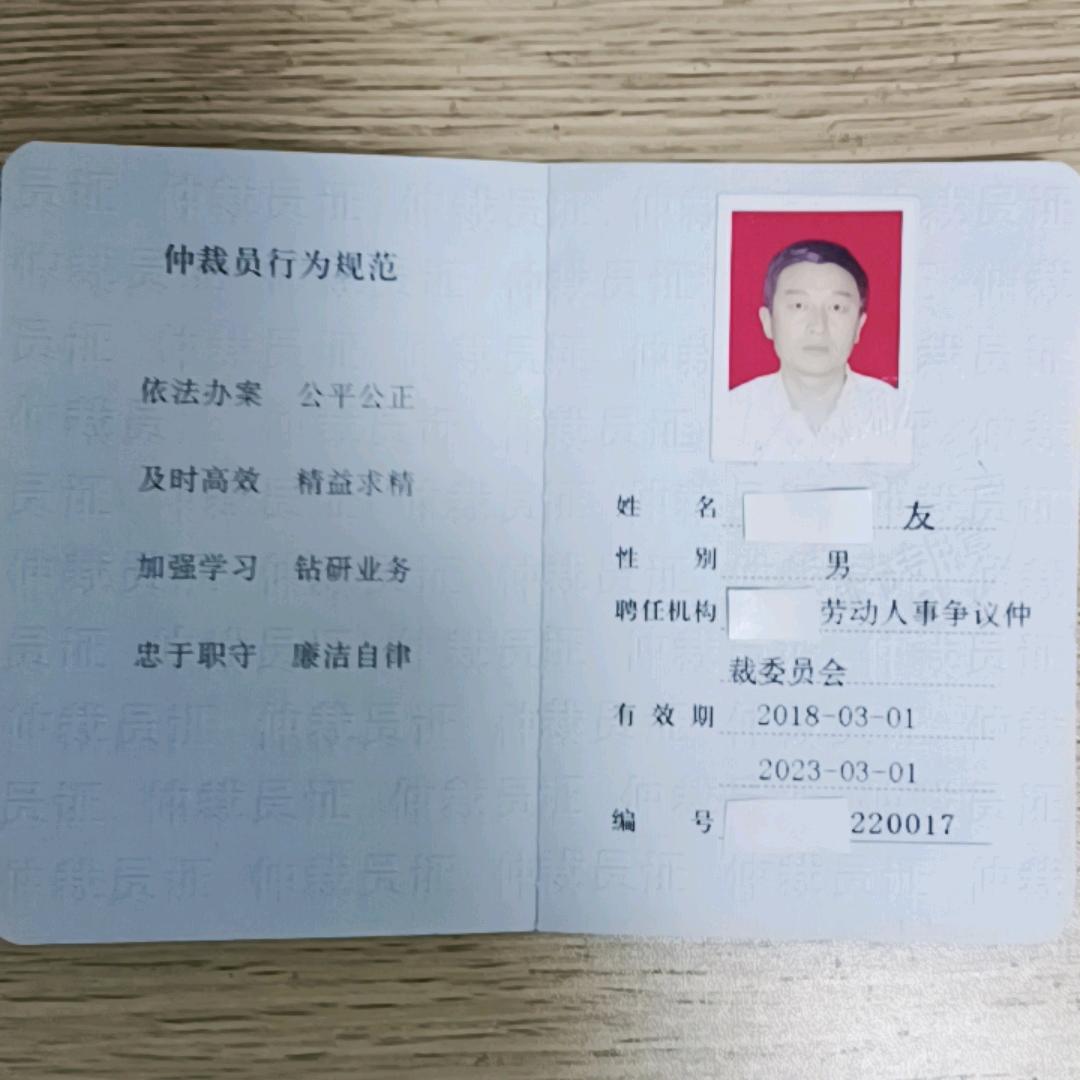 仲裁员行为规范
依法办案 公平公正
及时高效 精益求精
加强学习 钻研业务
忠于职守 廉洁自律
姓 名 友
性 别 男
聘任机构 劳动人事争议仲
裁委员会
有 效 期 2018-03-01
2023-03-01
编 号 220017